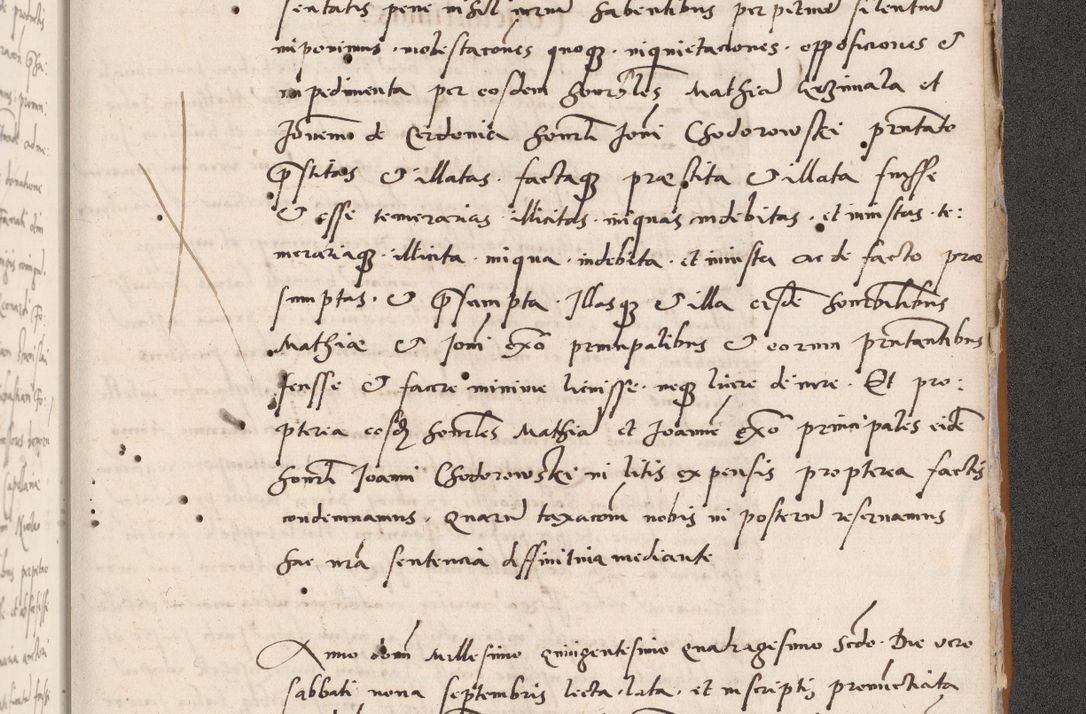 sentatis pene in hac parte habentibus perpetuum silentium
imponimus . molestaciones quoque . inquietaciones . opposiciones et
impedimenta per eosdem honorabiles Mathiam Grzimala et
Joannem de Cerdonia honorabili Joanni Chodorowski presentato
prestitas et illatas . factaque praestita et illata fuisse
et esse temerarias . illicitas . iniquas indebitas . et iniustas . te:
merariaque . illicita . iniqua . indebita . et iniusta ac de facto prae
sumptas . et presumpta . Illasque et illa eisdem honorabilibus
Mathiae et Joanni ex adverso principalibus et eorum presentantibus
fecisse et facere minime licuisse . neque licere de iure . Et pro:
pterea eosdem honorabiles Mathiam et Joannem ex adverso principales eidem
honorabili Joanni Chodorowski in litis expensis propterea factis
condemnamus . Quarum taxacionem nobis in posterum reservamus
hac nostra sentencia diffinitiva mediante
Anno domini Millesimo quingentesimo quadragesimo secundo . Die vero
sabbati nona septembris lecta . lata . et in scriptis pronunctiata